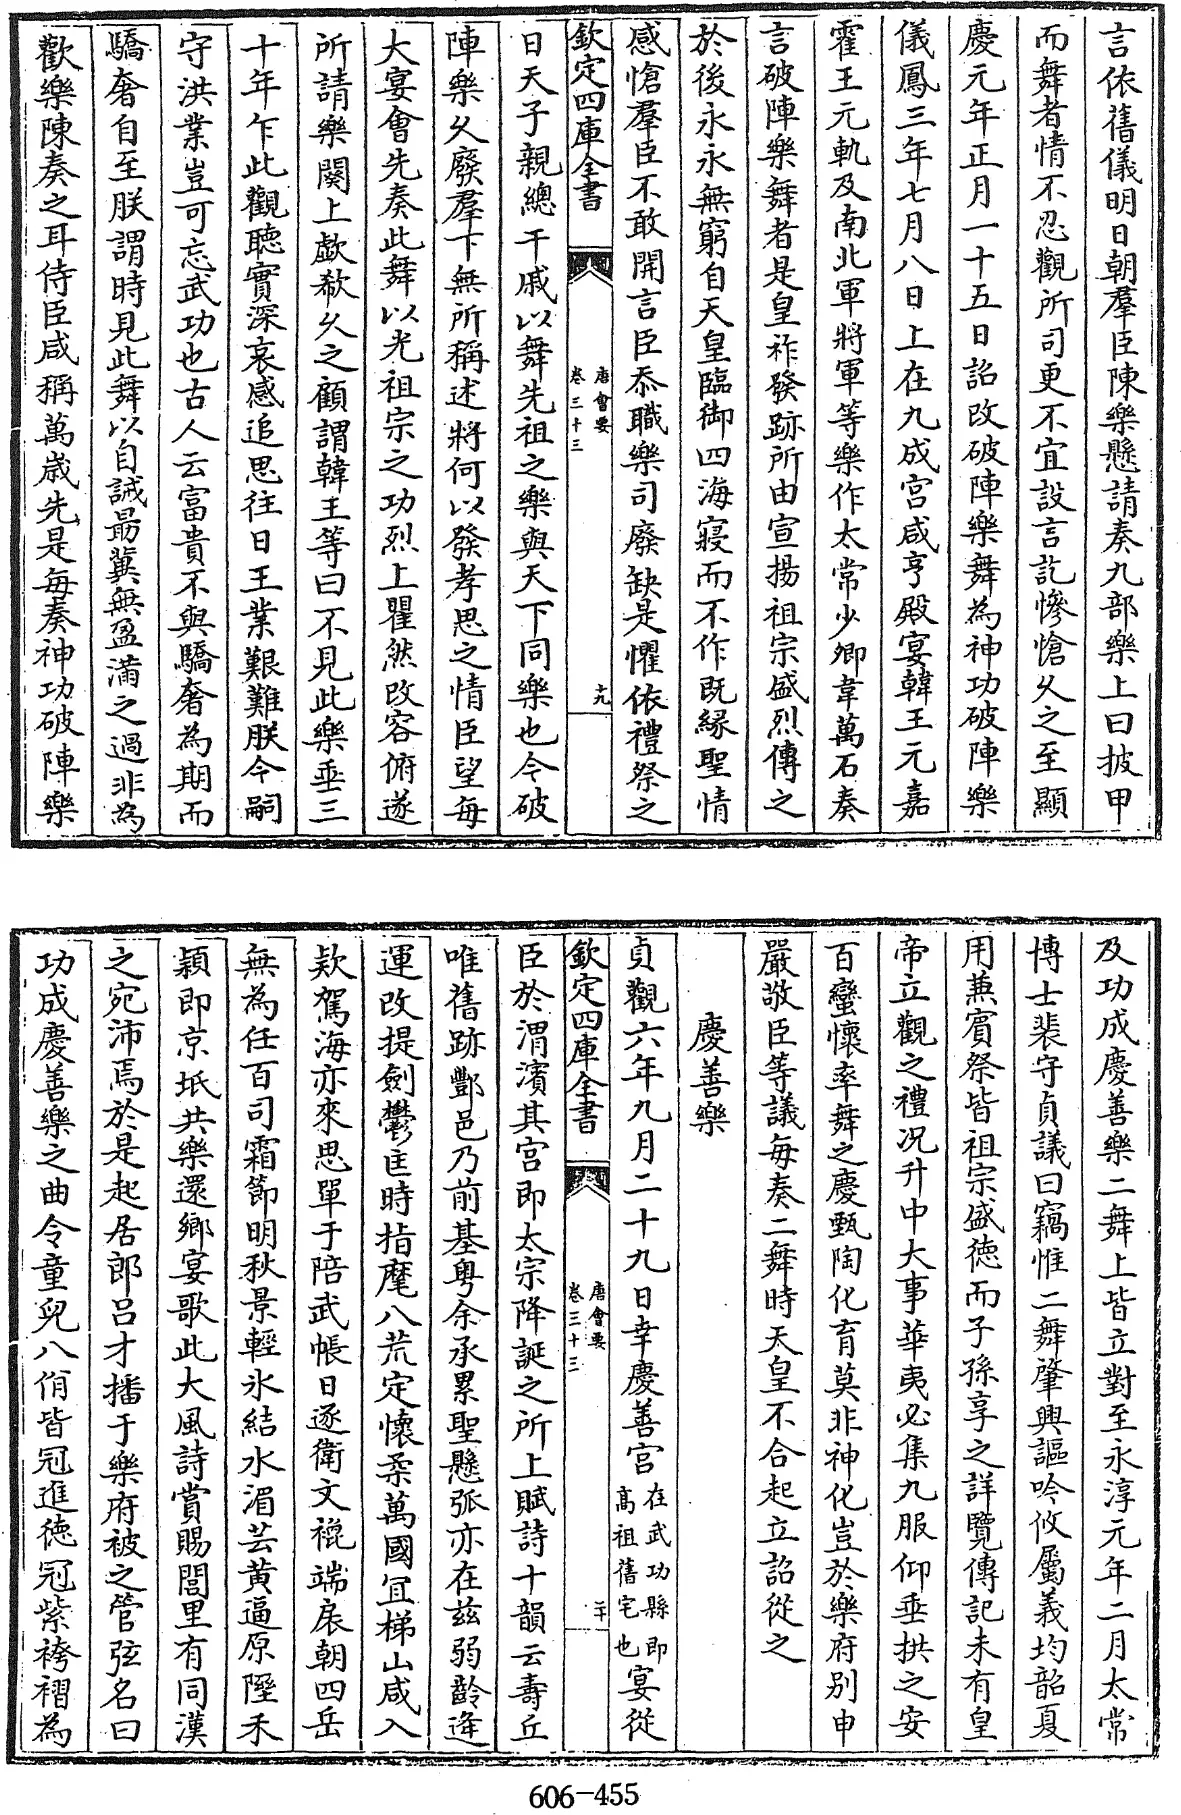 言依舊儀明日朝羣臣陳樂懸請奏九部樂上曰披甲
而舞者情不忍觀所司更不宜設言訖慘愴久之至顯
慶元年正月一十五日詔改破陣樂舞為神功破陣樂
儀鳳三年七月八日上在九成宫咸亨殿宴韓王元嘉
霍王元軌及南北軍將軍等樂作太常少卿韋萬石奏
言破陣樂舞者是皇祚發跡所由宣揚祖宗盛烈傳之
於後永永無窮自天皇臨御四海寢而不作既緣聖情
感愴羣臣不敢開言臣忝職樂司廢缺是懼依禮祭之
欽定四庫全書
唐會要
卷三十三
十九
日天子親總干戚以舞先祖之樂與天下同樂也今破
陣樂久廢羣下無所稱述將何以發孝思之情臣望每
大宴會先奏此舞以光祖宗之功烈上瞿然改容俯遂
所請樂闋上歔欷久之顧謂韓王等曰不見此樂垂三
十年乍此觀聽實深哀感追思往日王業艱難朕今嗣
守洪業豈可忘武功也古人云富貴不與驕奢為期而
驕奢自至朕謂時見此舞以自誡最冀無盈滿之過非為
歡樂陳奏之耳侍臣咸稱萬歲先是每奏神功破陣樂
及功成慶善樂二舞上皆立對至永淳元年二月太常
博士裴守貞議曰竊惟二舞肇興謳吟攸屬義均韶夏
用兼賓祭皆祖宗盛德而子孫享之詳覽傳記未有皇
帝立觀之禮况升中大事華夷必集九服仰垂拱之安
百蠻懷率舞之慶甄陶化育莫非神化豈於樂府别申
嚴敬臣等議每奏二舞時天皇不合起立詔從之
慶善樂
貞觀六年九月二十九日幸慶善宫在武功縣即高祖舊宅也宴從
欽定四庫全書
唐會要
卷三十三
二十
臣於渭濱其宫即太宗降誕之所上賦詩十韻云壽丘
唯舊跡酆邑乃前基粤余承累聖懸弧亦在兹弱齡逢
運改提劍鬱匡時指麾八荒定懷柔萬國宜梯山咸入
欵駕海亦來思單于陪武帳日逐衛文㮰端扆朝四岳
無為任百司霜節明秋景輕氷結水湄芸黄遍原隰禾
穎即京坻共樂還鄉宴歌此大風詩賞賜閭里有同漢
之宛沛焉於是起居郎吕才播于樂府被之管弦名曰
功成慶善樂之曲令童兒八佾皆冠進德冠紫袴褶為
606-455